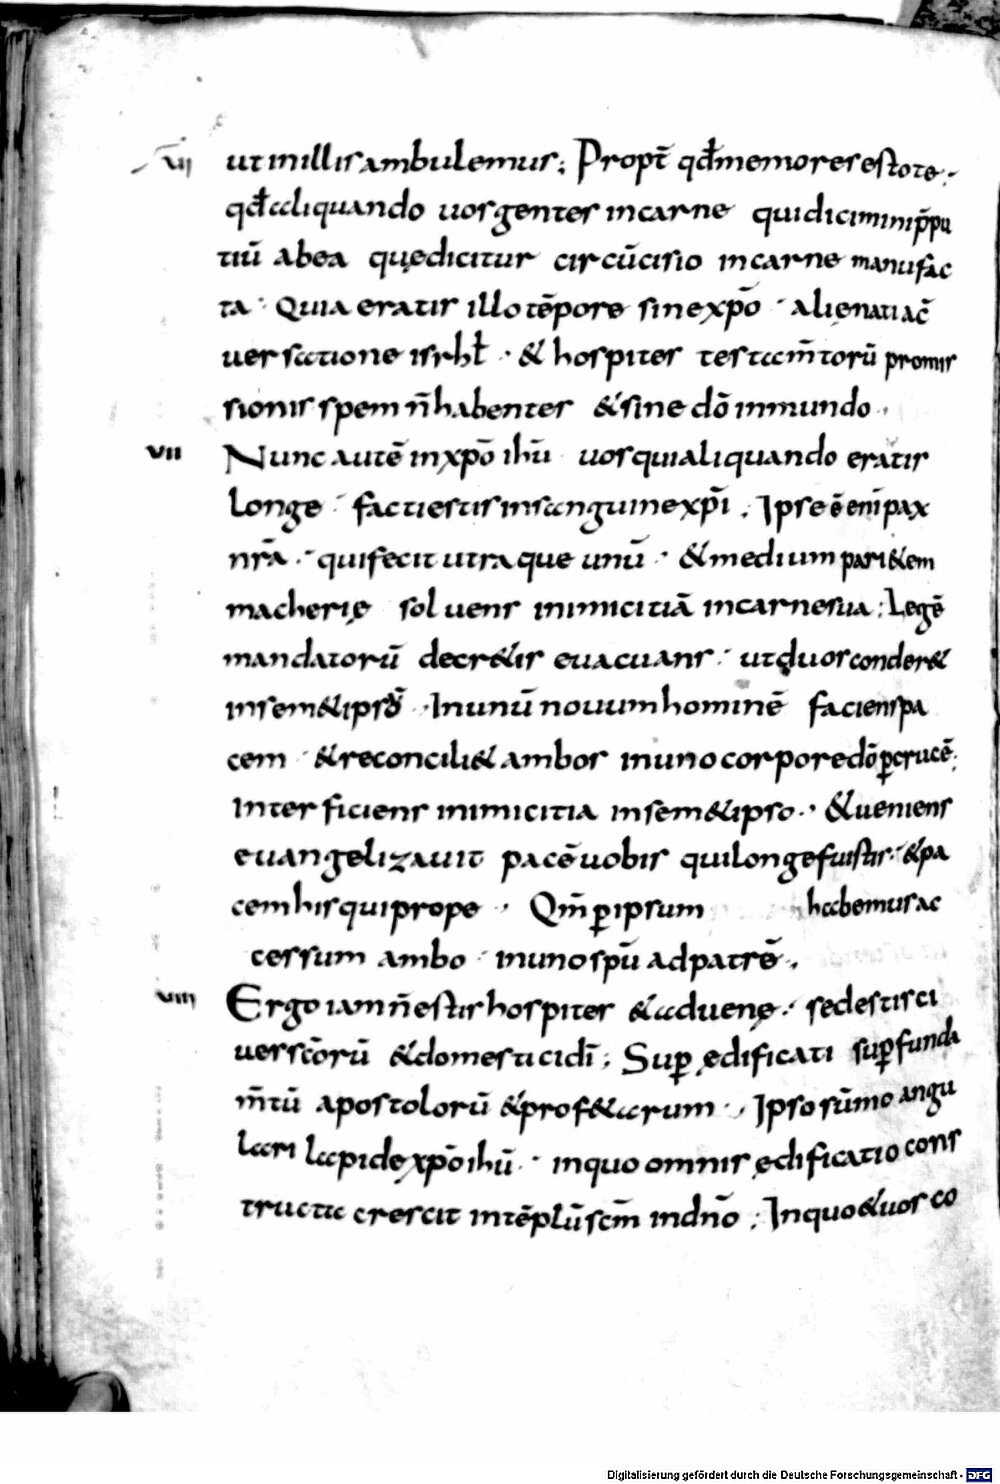 VII ut in illis ambulemus; Propt̄ qđ memores estote ·
qđ aliquando uos gentes in carne qui dicimini p̄pu
tiū ab ea quę dicitur circūcisio in carne manufac
ta · Quia eratis illo tēpore sine xp̄o · alienati a c̄
uersatione isrhł · & hospites testam̄torū promis
sionis spem n̄ habentes & sine dō in mundo ·
VII Nunc autē in xp̄o ihū uos qui aliquando eratis
longe · facti estis in sanguine xp̄i · Ipse ē eni pax
nr̄a · qui fecit utraque unū · & medium pari&em
macherię soluens inimicitiā in carne sua ; Legē
mandatorū decr&is euacuans · ut duos conder&
in sem&ipso · In unū nouum hominē faciens pa
cem · & reconcili& ambos in uno corpore dō p crucē ·
Interficiens inimicitia in sem&ipso · & ueniens
euangelizauit pacē uobis qui longe fuistis · & pa
cem his qui prope · Qm̄ p ipsum habemus ac
cessum ambo · in uno spū ad patrē ·
VIII Ergo iam n̄ estis hospites & aduenę · sed estis ci
ues sc̄orū & domestici dī ; Sup ędificati sup funda
m̄tū apostolorū & prof&arum · Ipso sūmo angu
lari lapide xp̄o ihū · in quo omnis ędificatio cons
tructa crescit in tēplū scm̄ in dn̄o ; In quo & uos co
Digitalisierung gefördert durch die Deutsche Forschungsgemeinschaft - DFG